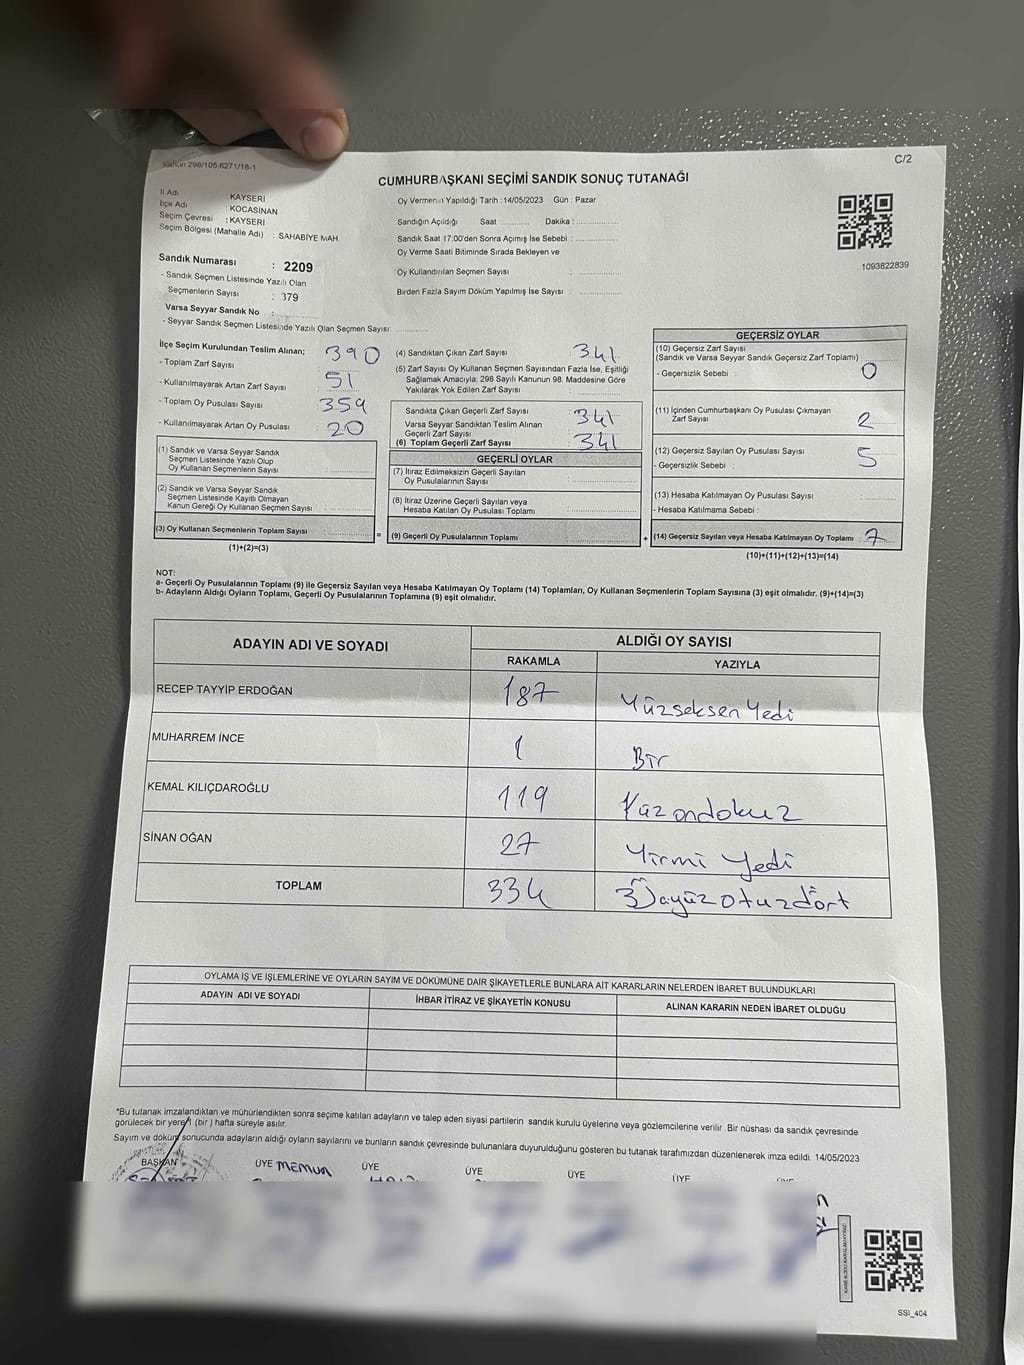 Kanun:298/105,6271/18-1
C/2
CUMHURBAŞKANI SEÇİMİ SANDIK SONUÇ TUTANAĞI
İli Adı : KAYSERİ
İlçe Adı : KOCASİNAN
Seçim Çevresi : KAYSERİ
Seçim Bölgesi (Mahalle Adı) : SAHABİYE MAH.
Sandık Numarası : 2209
- Sandık Seçmen Listesinde Yazılı Olan
Seçmenlerin Sayısı : 379
Varsa Seyyar Sandık No :
- Seyyar Sandık Seçmen Listesinde Yazılı Olan Seçmen Sayısı:
Oy Vermenin Yapıldığı Tarih :14/05/2023 Gün : Pazar
Sandığın Açıldığı Saat Dakika :
Sandık Saat 17.00'den Sonra Açımış İse Sebebi :
Oy Verme Saati Bitiminde Sırada Bekleyen ve
Oy Kullandırılan Seçmen Sayısı :
Birden Fazla Sayım Döküm Yapılmış İse Sayısı :
1093822839
İlçe Seçim Kurulundan Teslim Alınan;
- Toplam Zarf Sayısı : 390
- Kullanılmayarak Artan Zarf Sayısı : 51
- Toplam Oy Pusulası Sayısı : 359
- Kullanılmayarak Artan Oy Pusulası : 20
(1) Sandık ve Varsa Seyyar Sandık
Seçmen Listesinde Yazılı Olup
Oy Kullanan Seçmenlerin Sayısı :
(2) Sandık ve Varsa Seyyar Sandık
Seçmen Listesinde Kayıtlı Olmayan
Kanun Gereği Oy Kullanan Seçmen Sayısı :
(3) Oy Kullanan Seçmenlerin Toplam Sayısı : =
(1)+(2)=(3)
(4) Sandıktan Çıkan Zarf Sayısı : 341
(5) Zarf Sayısı Oy Kullanan Seçmen Sayısından Fazla İse, Eşitliği
Sağlamak Amacıyla; 298 Sayılı Kanunun 98. Maddesine Göre
Yakılarak Yok Edilen Zarf Sayısı :
Sandıkta Çıkan Geçerli Zarf Sayısı : 341
Varsa Seyyar Sandıktan Teslim Alınan
Geçerli Zarf Sayısı :
(6) Toplam Geçerli Zarf Sayısı : 341
GEÇERLİ OYLAR
(7) İtiraz Edilmeksizin Geçerli Sayılan
Oy Pusulalarının Sayısı :
(8) İtiraz Üzerine Geçerli Sayılan veya
Hesaba Katılan Oy Pusulası Toplamı :
(9) Geçerli Oy Pusulalarının Toplamı : +
GEÇERSİZ OYLAR
(10) Geçersiz Zarf Sayısı
(Sandık ve Varsa Seyyar Sandık Geçersiz Zarf Toplamı) :
- Geçersizlik Sebebi : 0
(11) İçinden Cumhurbaşkanı Oy Pusulası Çıkmayan
Zarf Sayısı : 2
(12) Geçersiz Sayılan Oy Pusulası Sayısı : 5
- Geçersizlik Sebebi :
(13) Hesaba Katılmayan Oy Pusulası Sayısı :
- Hesaba Katılmama Sebebi :
(14) Geçersiz Sayılan veya Hesaba Katılmayan Oy Toplamı : 7
(10)+(11)+(12)+(13)=(14)
NOT:
a- Geçerli Oy Pusulalarının Toplamı (9) ile Geçersiz Sayılan veya Hesaba Katılmayan Oy Toplamı (14) Toplamları, Oy Kullanan Seçmenlerin Toplam Sayısına (3) eşit olmalıdır. (9)+(14)=(3)
b- Adayların Aldığı Oyların Toplamı, Geçerli Oy Pusulalarının Toplamına (9) eşit olmalıdır.
ADAYIN ADI VE SOYADI
ALDIĞI OY SAYISI
RAKAMLA YAZIYLA
RECEP TAYYİP ERDOĞAN 187 Yüzseksen Yedi
MUHARREM İNCE 1 Bir
KEMAL KILIÇDAROĞLU 119 Yüz ondokuz
SİNAN OĞAN 27 Yirmi Yedi
TOPLAM 334 üçyüzotuzdört
OYLAMA İŞ VE İŞLEMLERİNE VE OYLARIN SAYIM VE DÖKÜMÜNE DAİR ŞİKAYETLERLE BUNLARA AİT KARARLARIN NELERDEN İBARET BULUNDUKLARI
ADAYIN ADI VE SOYADI İHBAR İTİRAZ VE ŞİKAYETİN KONUSU ALINAN KARARIN NEDEN İBARET OLDUĞU
*Bu tutanak imzalandıktan ve mühürlendikten sonra seçime katılan adayların ve talep eden siyasi partilerin sandık kurulu üyelerine veya gözlemcilerine verilir. Bir nüshası da sandık çevresinde
görülecek bir yere 1 (bir ) hafta süreyle asılır.
Sayım ve döküm sonucunda adayların aldığı oyların sayılarını ve bunların sandık çevresinde bulunanlara duyurulduğunu gösteren bu tutanak tarafımızdan düzenlenerek imza edildi. 14/05/2023
BAŞKAN ÜYE MEMUR ÜYE ÜYE ÜYE ÜYE
SSI_404